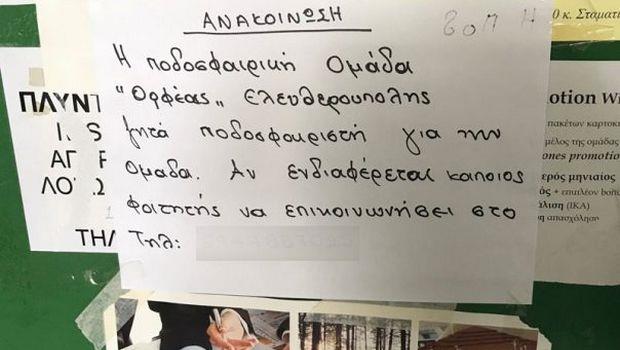 ΑΝΑΚΟΙΝΩΣΗ
Η ποδοσφαιρική Ομάδα
"Ορφέας" Ελευθερουπολης
ζητά ποδοσφαιριστή για την
Ομαδα. Αν ενδιαφέρεται καποιος
φοιτητής να επικοινωνήσει στο
Τηλ:
ΠΛΥΝΤ
ΑΓ
ΛΟ
ΤΗΛ
0 κ. Σταματι
otion Wi
πακέτων καρτοκι
μέλος της ομάδας
ones promotio
ερός μηνιαίος
ός + επιπλέον bonu
άλιση (ΙΚΑ)
απασχόληση